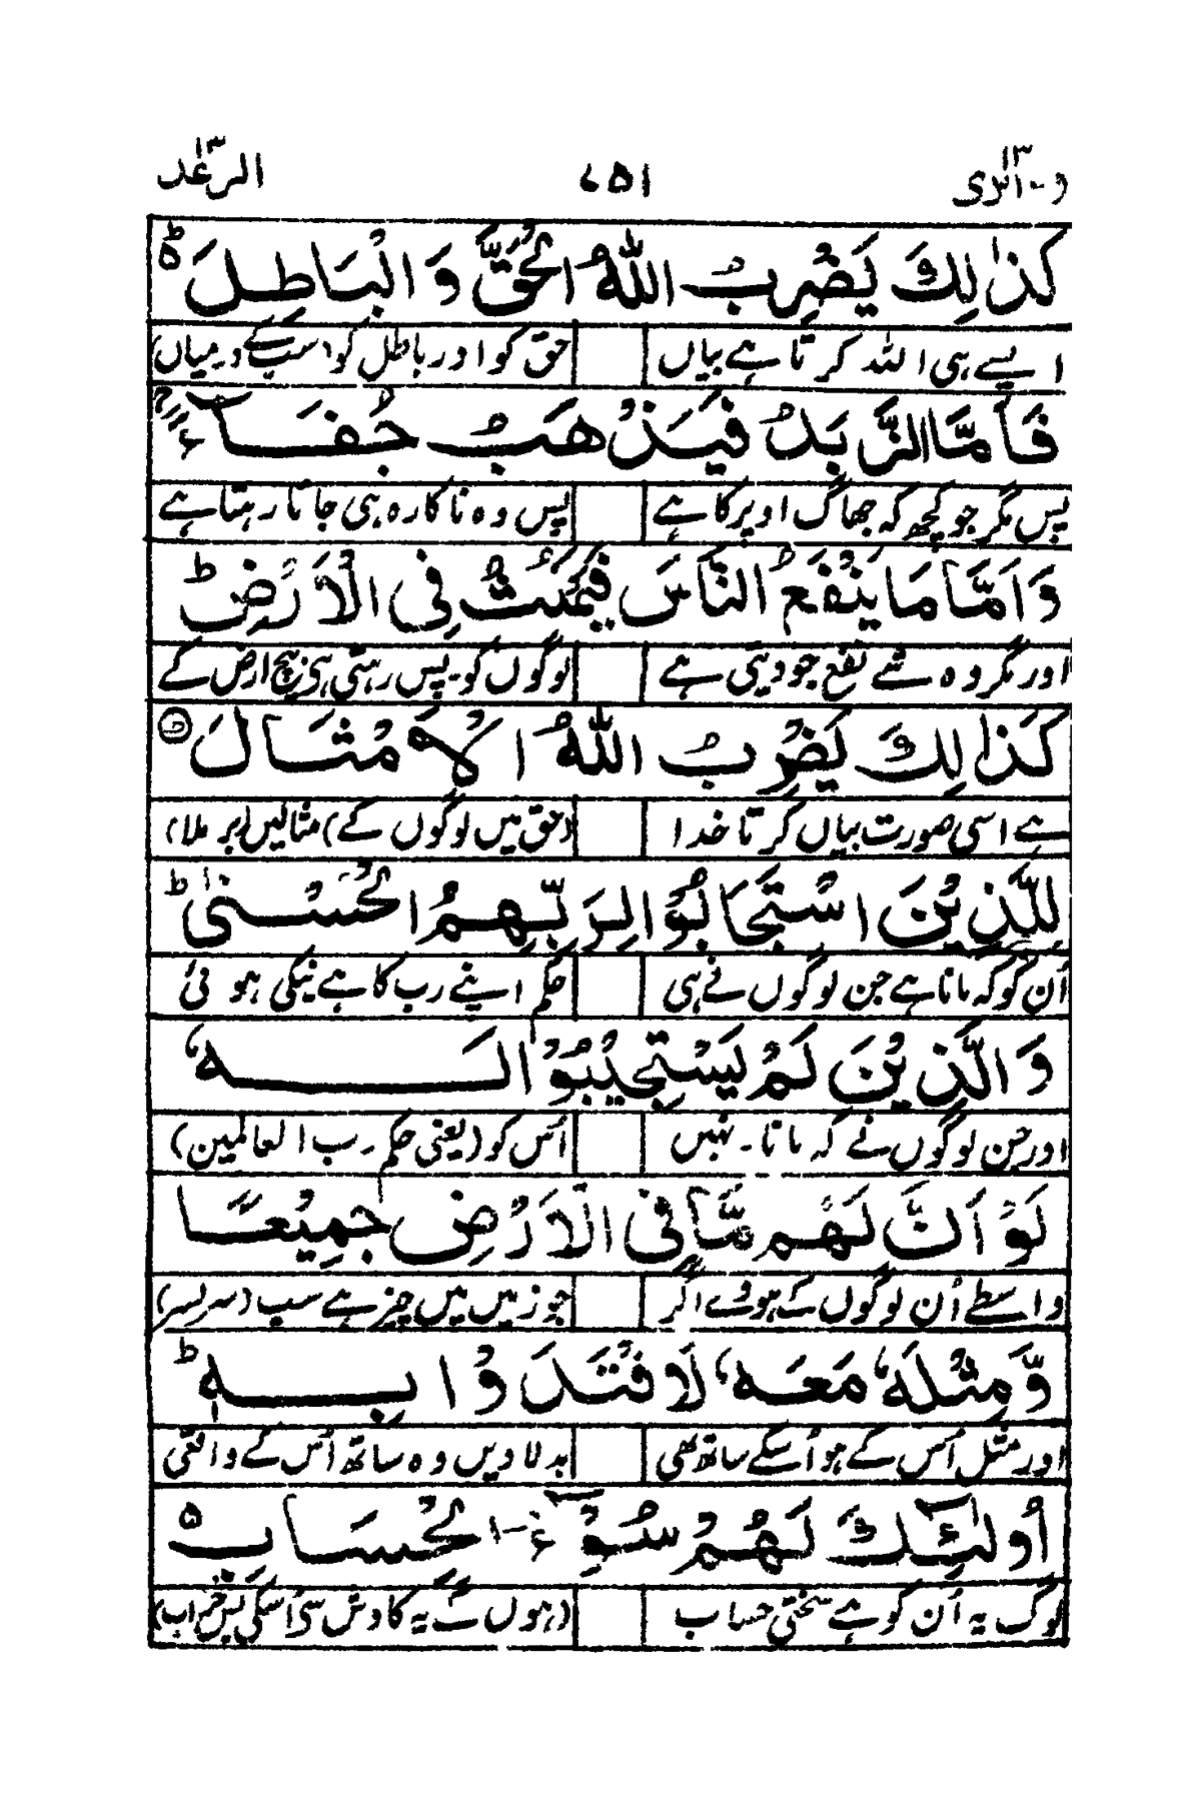 و۔ ابری ١٣ ٧٥١ الرعد ١٣
كَذٰلِكَ يَضْرِبُ اللّٰهُ الْحَقَّ وَالْبَاطِلَ ؕ۬
ایسے ہی اللہ کرتا ہے بیاں حق کو اور باطل کو (سب کے درمیاں)
فَاَمَّا الزَّبَدُ فَيَذْهَبُ جُفَآءً ۚ
پس مگر جو کچھ کہ جھاگ اوپر کا ہے پس وہ ناکارہ ہی جاتا رہتا ہے
وَاَمَّا مَا يَنْفَعُ النَّاسَ فَيَمْكُثُ فِى الْاَرْضِ ؕ
اور مگر وہ شے نفع جو دیتی ہے لوگوں کو۔ پس رہتی ہی بیچ ارض کے
كَذٰلِكَ يَضْرِبُ اللّٰهُ الْاَمْثَالَ
ہے اسی صورت بیاں کرتا خدا (حق میں لوگوں کے) مثالیں (برملا)
لِلَّذِيْنَ اسْتَجَابُوْا لِرَبِّهِمُ الْحُسْنٰى ؕ
اُن کو کہ مانا ہے جن لوگوں نے ہی حکم اپنے رب کا ہے نیکی ہوئی
وَالَّذِيْنَ لَمْ يَسْتَجِيْبُوْا لَهٗ
اور جن لوگوں نے کہ مانا۔ نہیں اُس کو (یعنی حکم۔ رب العالمین)
لَوْ اَنَّ لَهُمْ مَّا فِى الْاَرْضِ جَمِيْعًا
واسطے اُن لوگوں کے ہووے اگر جو زمیں میں چیز ہے سب (سربسر)
وَّمِثْلَهٗ مَعَهٗ لَافْتَدَوْا بِهٖ ؕ
اور مثل اُس کے ہو اُسکے ساتھ بھی بدلا دیں وہ ساتھ اُس کے واقعی
اُولٰٓئِكَ لَهُمْ سُوْٓءُ الْحِسَابِ ۵
لوگ یہ اُن کو ہے سختی حساب (ہوں گے یہ کاوش سے اُسکی بس خراب)